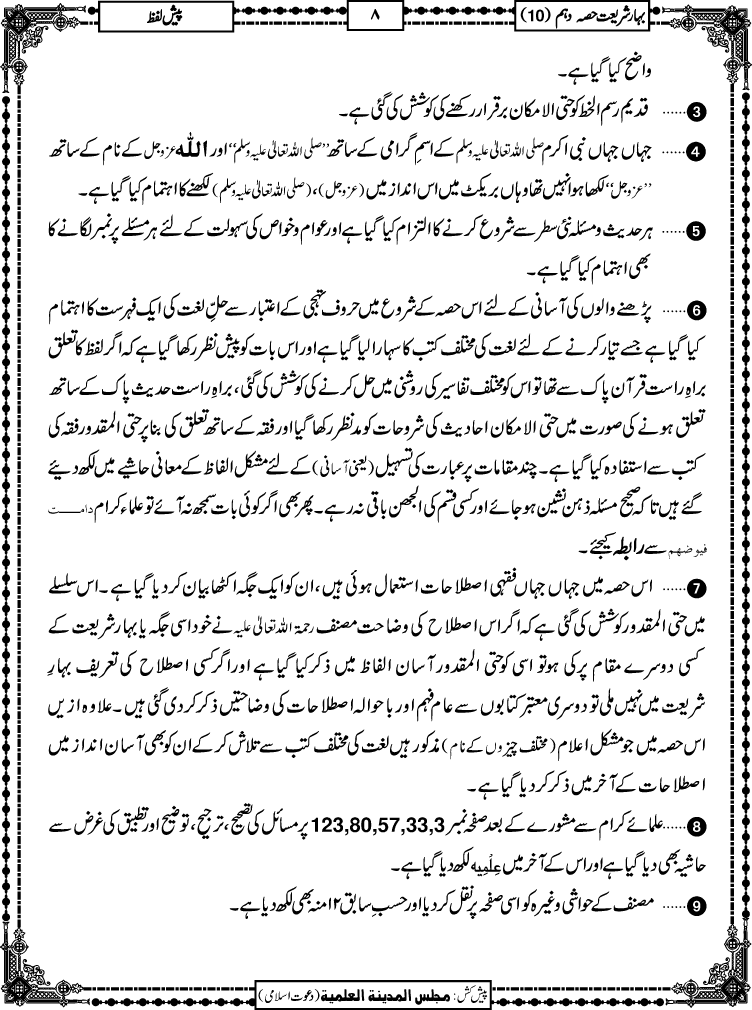 بہار شریعت حصہ دہم (10)
۸
پیش لفظ
واضح کیا گیا ہے۔
3 ...... قدیم رسم الخط کو حتی الامکان برقرار رکھنے کی کوشش کی گئی ہے۔
4 ...... جہاں جہاں نبی اکرم صلی اللہ تعالیٰ علیہ وسلم کے اسمِ گرامی کے ساتھ ’’صلی اللہ تعالیٰ علیہ وسلم‘‘ اور اللہ عزوجل کے نام کے ساتھ
’’عزوجل‘‘ لکھا ہوا نہیں تھا وہاں بریکٹ میں اس انداز میں (عزوجل)، (صلی اللہ تعالیٰ علیہ وسلم) لکھنے کا اہتمام کیا گیا ہے۔
5 ...... ہر حدیث و مسئلہ نئی سطر سے شروع کرنے کا التزام کیا گیا ہے اور عوام و خواص کی سہولت کے لئے ہر مسئلے پر نمبر لگانے کا
بھی اہتمام کیا گیا ہے۔
6 ...... پڑھنے والوں کی آسانی کے لئے اس حصہ کے شروع میں حروف تہجی کے اعتبار سے حلِّ لغت کی ایک فہرست کا اہتمام
کیا گیا ہے جسے تیار کرنے کے لئے لغت کی مختلف کتب کا سہارا لیا گیا ہے اور اس بات کو پیش نظر رکھا گیا ہے کہ اگر لفظ کا تعلق
براہِ راست قرآن پاک سے تھا تو اس کو مختلف تفاسیر کی روشنی میں حل کرنے کی کوشش کی گئی، براہِ راست حدیث پاک کے ساتھ
تعلق ہونے کی صورت میں حتی الامکان احادیث کی شروحات کو مدنظر رکھا گیا اور فقہ کے ساتھ تعلق کی بنا پر حتی المقدور فقہ کی
کتب سے استفادہ کیا گیا ہے۔ چند مقامات پر عبارت کی تسہیل (یعنی آسانی) کے لئے مشکل الفاظ کے معانی حاشیے میں لکھ دیئے
گئے ہیں تا کہ صحیح مسئلہ ذہن نشین ہو جائے اور کسی قسم کی الجھن باقی نہ رہے۔ پھر بھی اگر کوئی بات سمجھ نہ آئے تو علماء کرام دامت
فیوضہم سے رابطہ کیجئے۔
7 ...... اس حصہ میں جہاں جہاں فقہی اصطلاحات استعمال ہوئی ہیں، ان کو ایک جگہ اکٹھا بیان کر دیا گیا ہے۔ اس سلسلے
میں حتی المقدور کوشش کی گئی ہے کہ اگر اس اصطلاح کی وضاحت مصنف رحمۃ اللہ تعالیٰ علیہ نے خود اسی جگہ یا بہار شریعت کے
کسی دوسرے مقام پر کی ہو تو اسی کو حتی المقدور آسان الفاظ میں ذکر کیا گیا ہے اور اگر کسی اصطلاح کی تعریف بہارِ
شریعت میں نہیں ملی تو دوسری معتبر کتابوں سے عام فہم اور باحوالہ اصطلاحات کی وضاحتیں ذکر کر دی گئی ہیں۔ علاوہ ازیں
اس حصہ میں جو مشکل اعلام (مختلف چیزوں کے نام) مذکور ہیں لغت کی مختلف کتب سے تلاش کر کے ان کو بھی آسان انداز میں
اصطلاحات کے آخر میں ذکر کر دیا گیا ہے۔
8 ...... علمائے کرام سے مشورے کے بعد صفحہ نمبر 123,80,57,33,3 پر مسائل کی تصحیح، ترجیح، توضیح اور تطبیق کی غرض سے
حاشیہ بھی دیا گیا ہے اور اس کے آخر میں عِلْمِیہ لکھ دیا گیا ہے۔
9 ...... مصنف کے حواشی وغیرہ کو اسی صفحہ پر نقل کر دیا اور حسبِ سابق ۱۲ منہ بھی لکھ دیا ہے۔
پیش کش: مجلس المدینۃ العلمیۃ (دعوت اسلامی)